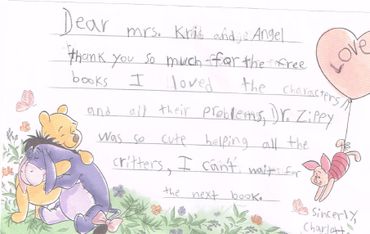 Dear mrs. Krid and Angel
thank you so much for the free
books I loved the characters
and all their problems, Dr. Zippy
was so cute helping all the
critters, I can't wait for
the next book.
LOVE
Sincerly,
Charlott